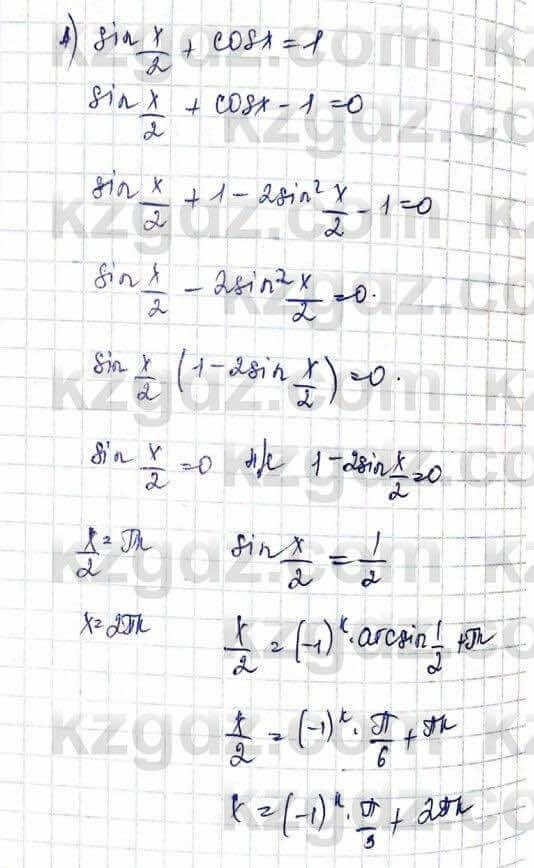 1) sin x/2 + cosx = 1
sin x/2 + cosx - 1 = 0
sin x/2 + 1 - 2sin² x/2 - 1 = 0
sin x/2 - 2sin² x/2 = 0.
sin x/2 (1 - 2sin x/2) = 0.
sin x/2 = 0 н/е 1 - 2sin x/2 = 0
x/2 = πn sin x/2 = 1/2
x = 2πn x/2 = (-1)ᵏ · arcsin 1/2 + πn
x/2 = (-1)ᵏ · π/6 + πn
x = (-1)ᵏ · π/3 + 2πn
kzgdz.com